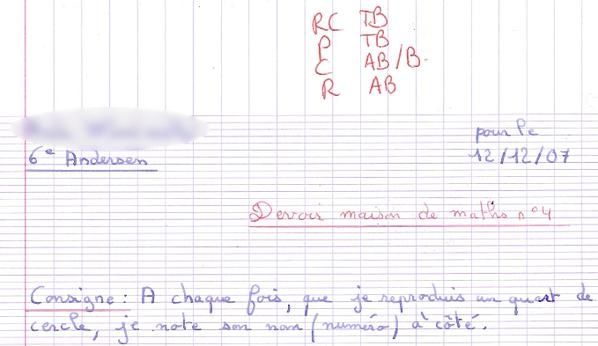 RC TB
P TB
C AB/B
R AB
pour le
6e Andersen
12/12/07
Devoir maison de maths n°4
Consigne : A chaque fois, que je reproduis un quart de
cercle, je note son nom (numéro) à côté.